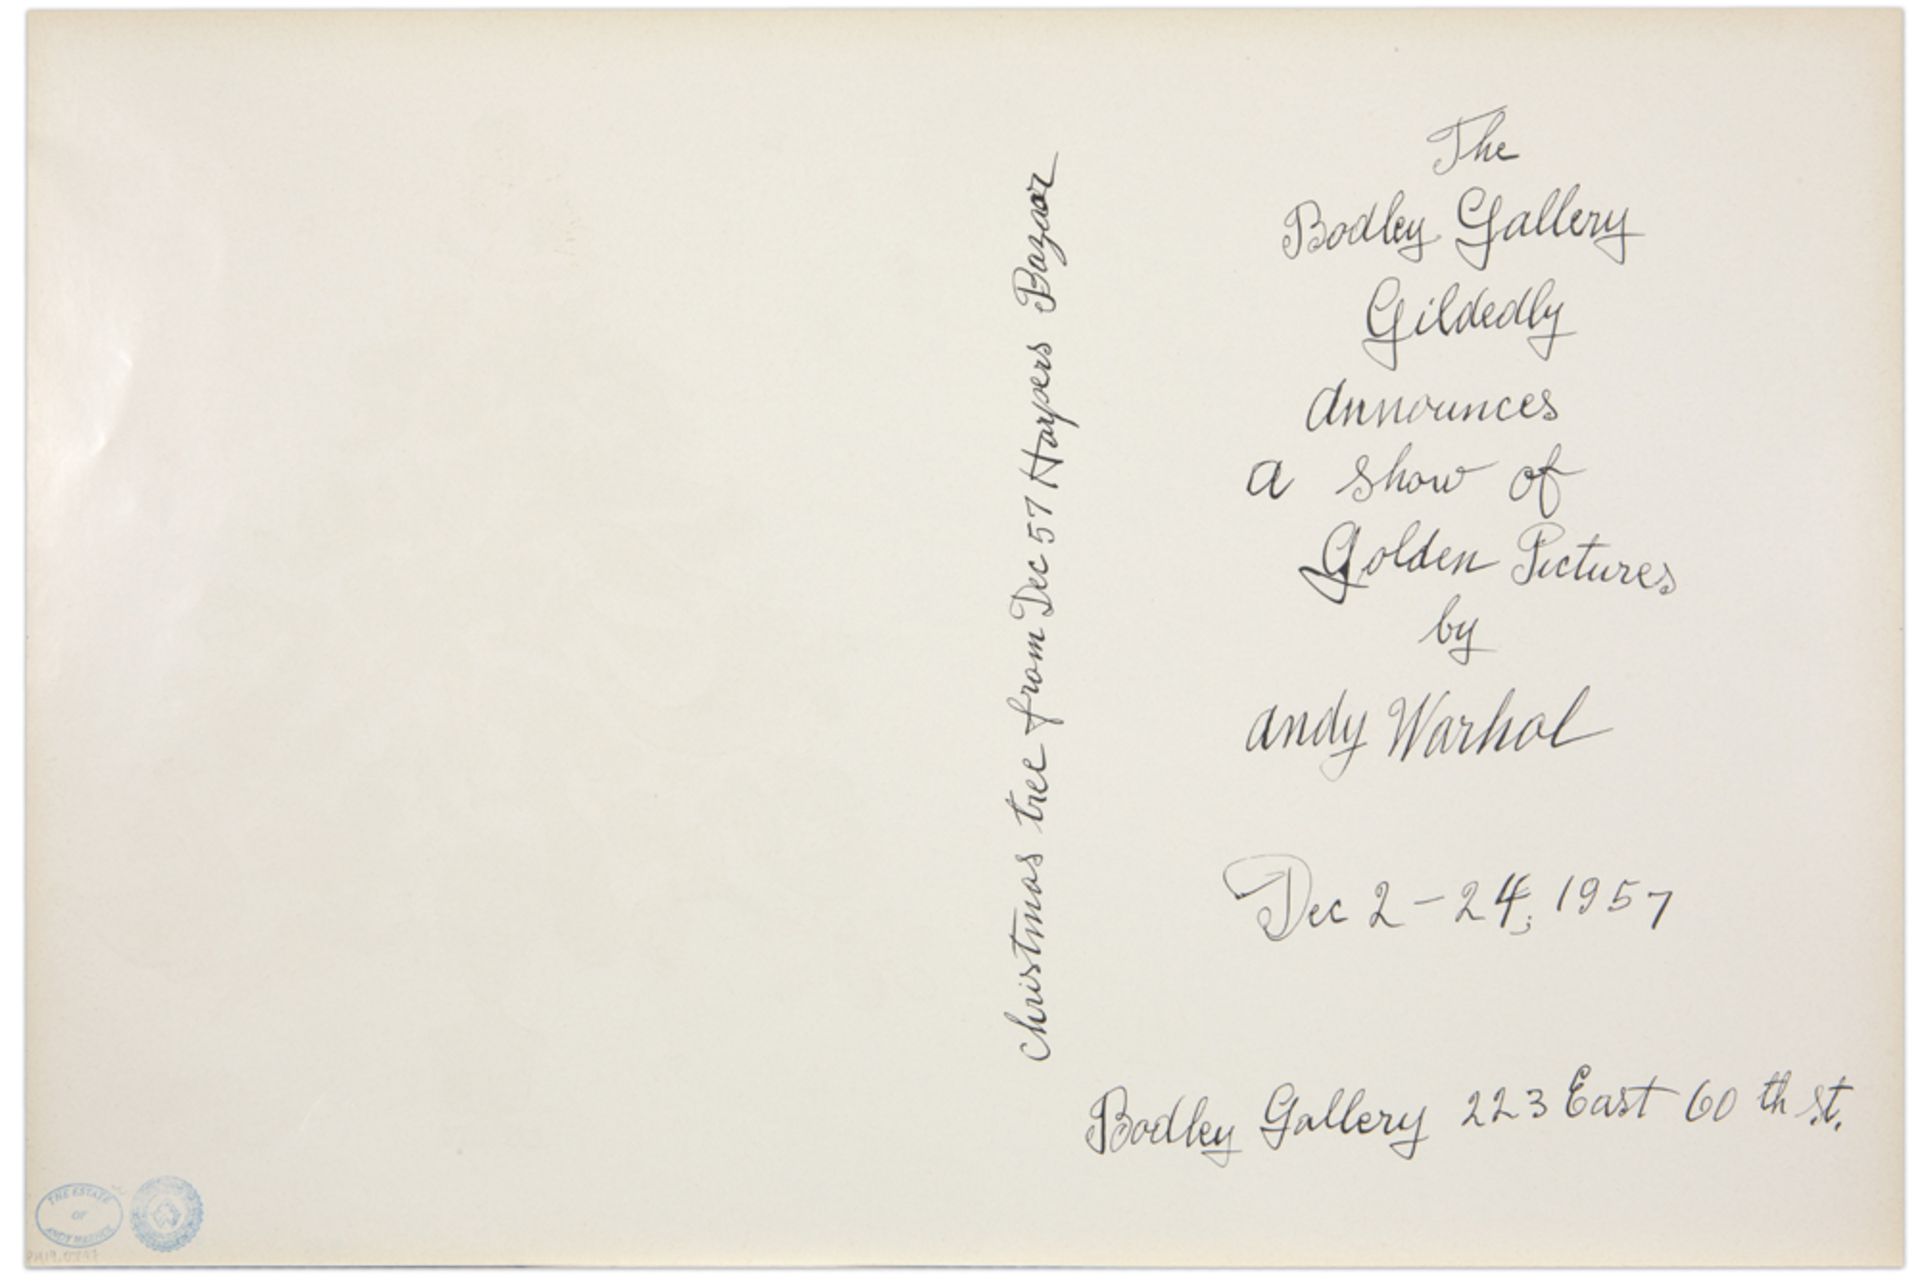 The
Bodley Gallery
Gildedly
announces
a show of
Golden Pictures
by
andy Warhol
Dec 2 - 24, 1957
Bodley Gallery 223 East 60 th st.
Christmas tree from Dec 57 Harpers Bazaar
THE ESTATE
OF
ANDY WARHOL